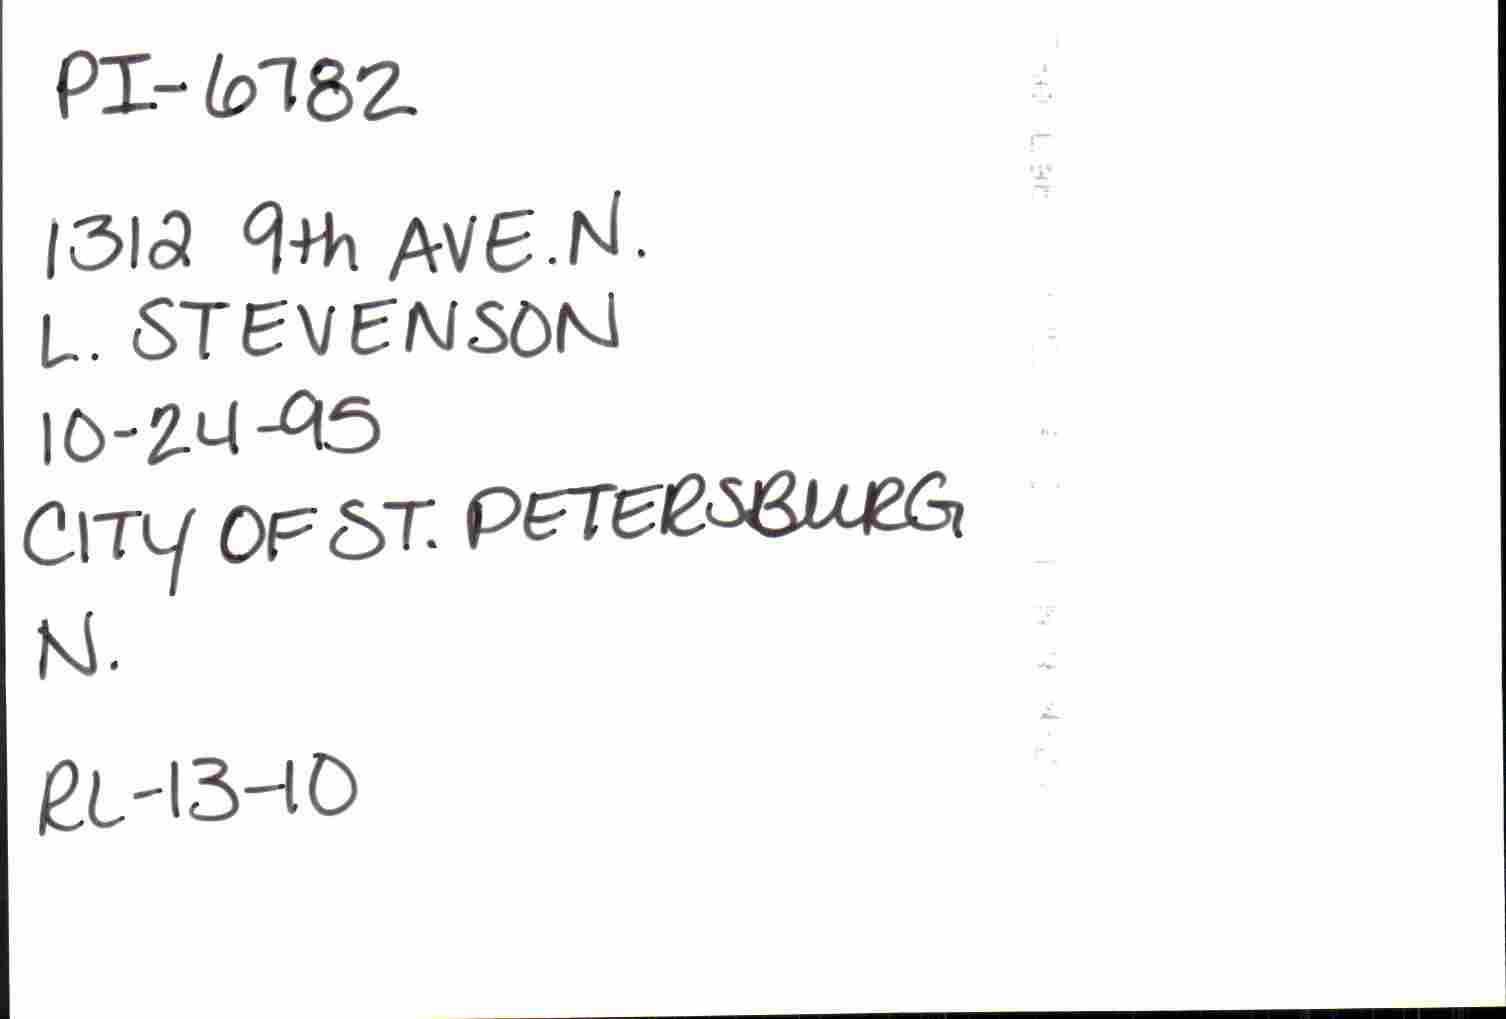 PI-6782
1312 9th AVE. N.
L. STEVENSON
10-24-95
CITY OF ST. PETERSBURG
N.
RL-13-10